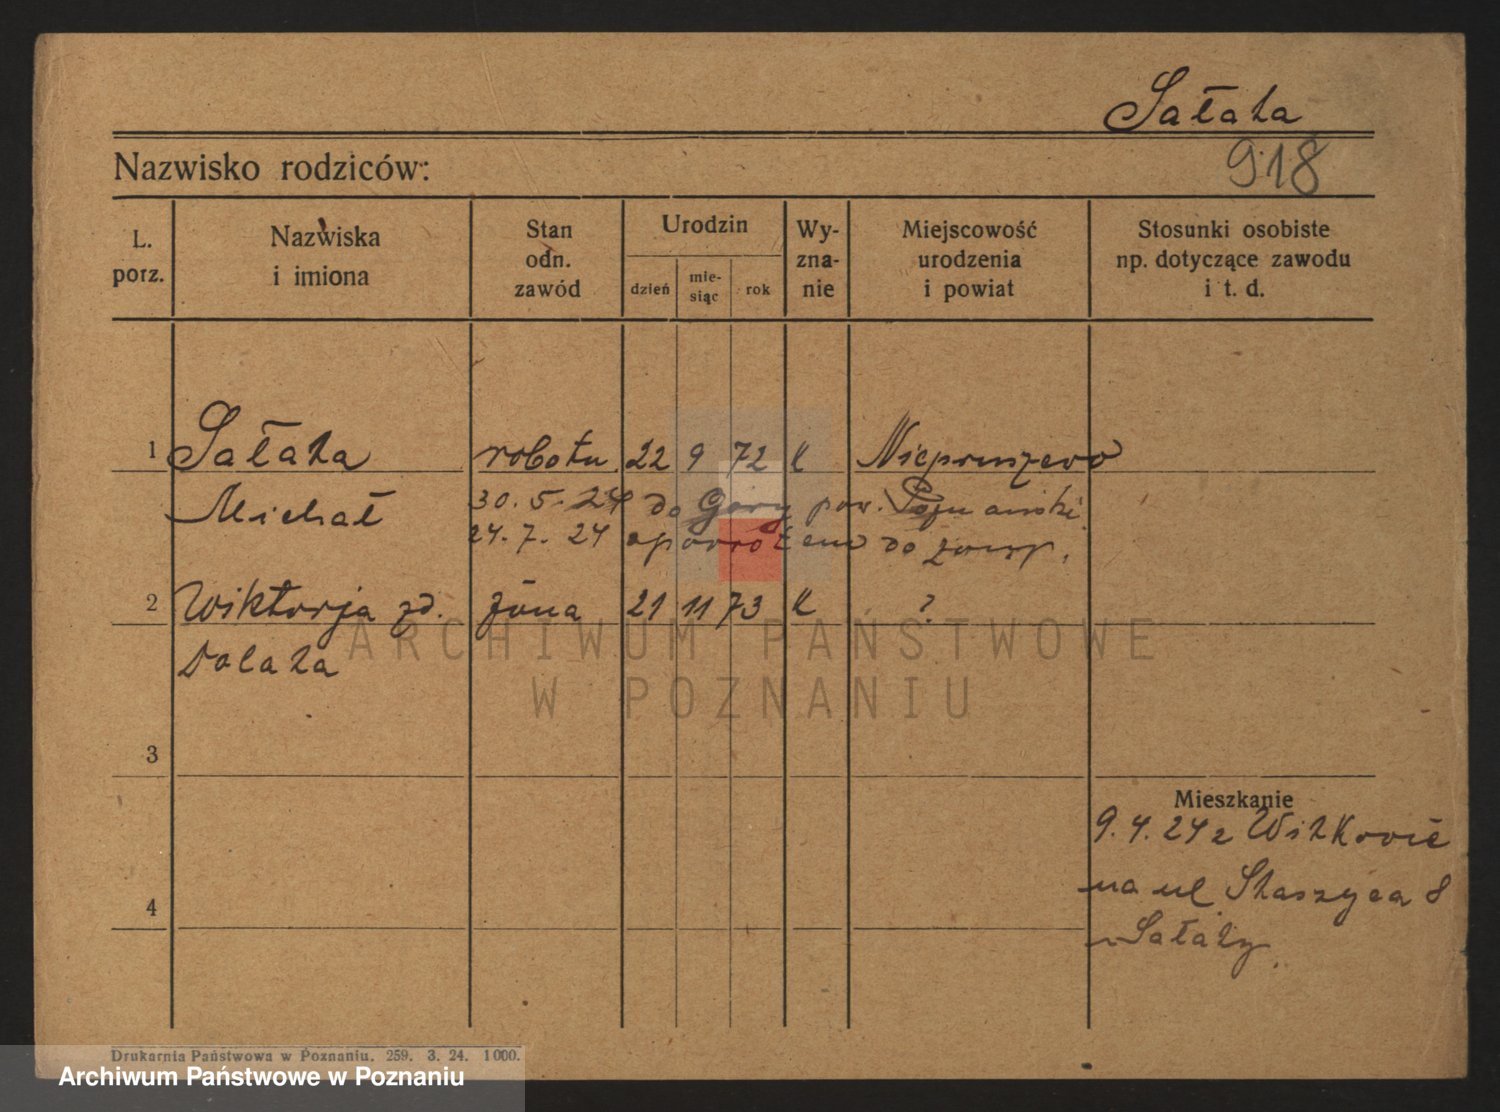 Sałata
Nazwisko rodziców:
918
L. porz.
Nazwiska i imiona
Stan odn. zawód
Urodzin
dzień
mie-siąc
rok
Wy-zna-nie
Miejscowość urodzenia i powiat
Stosunki osobiste np. dotyczące zawodu i t. d.
1 Sałata robotn. 22 9 72 K Niepruszewo
Michał 30. 5. 24 do Góry pow. Poznański
24. 7. 24 do
2 Wiktorja zd. żona 21 11 73 K ?
Dolata
ARCHIWUM PAŃSTWOWE
W POZNANIU
3
Mieszkanie
9. 4. 24 z Witkovic
na ul Staszyca 8
4
Sałaty
Drukarnia Państwowa w Poznaniu. 259. 3. 24. 1000.
Archiwum Państwowe w Poznaniu